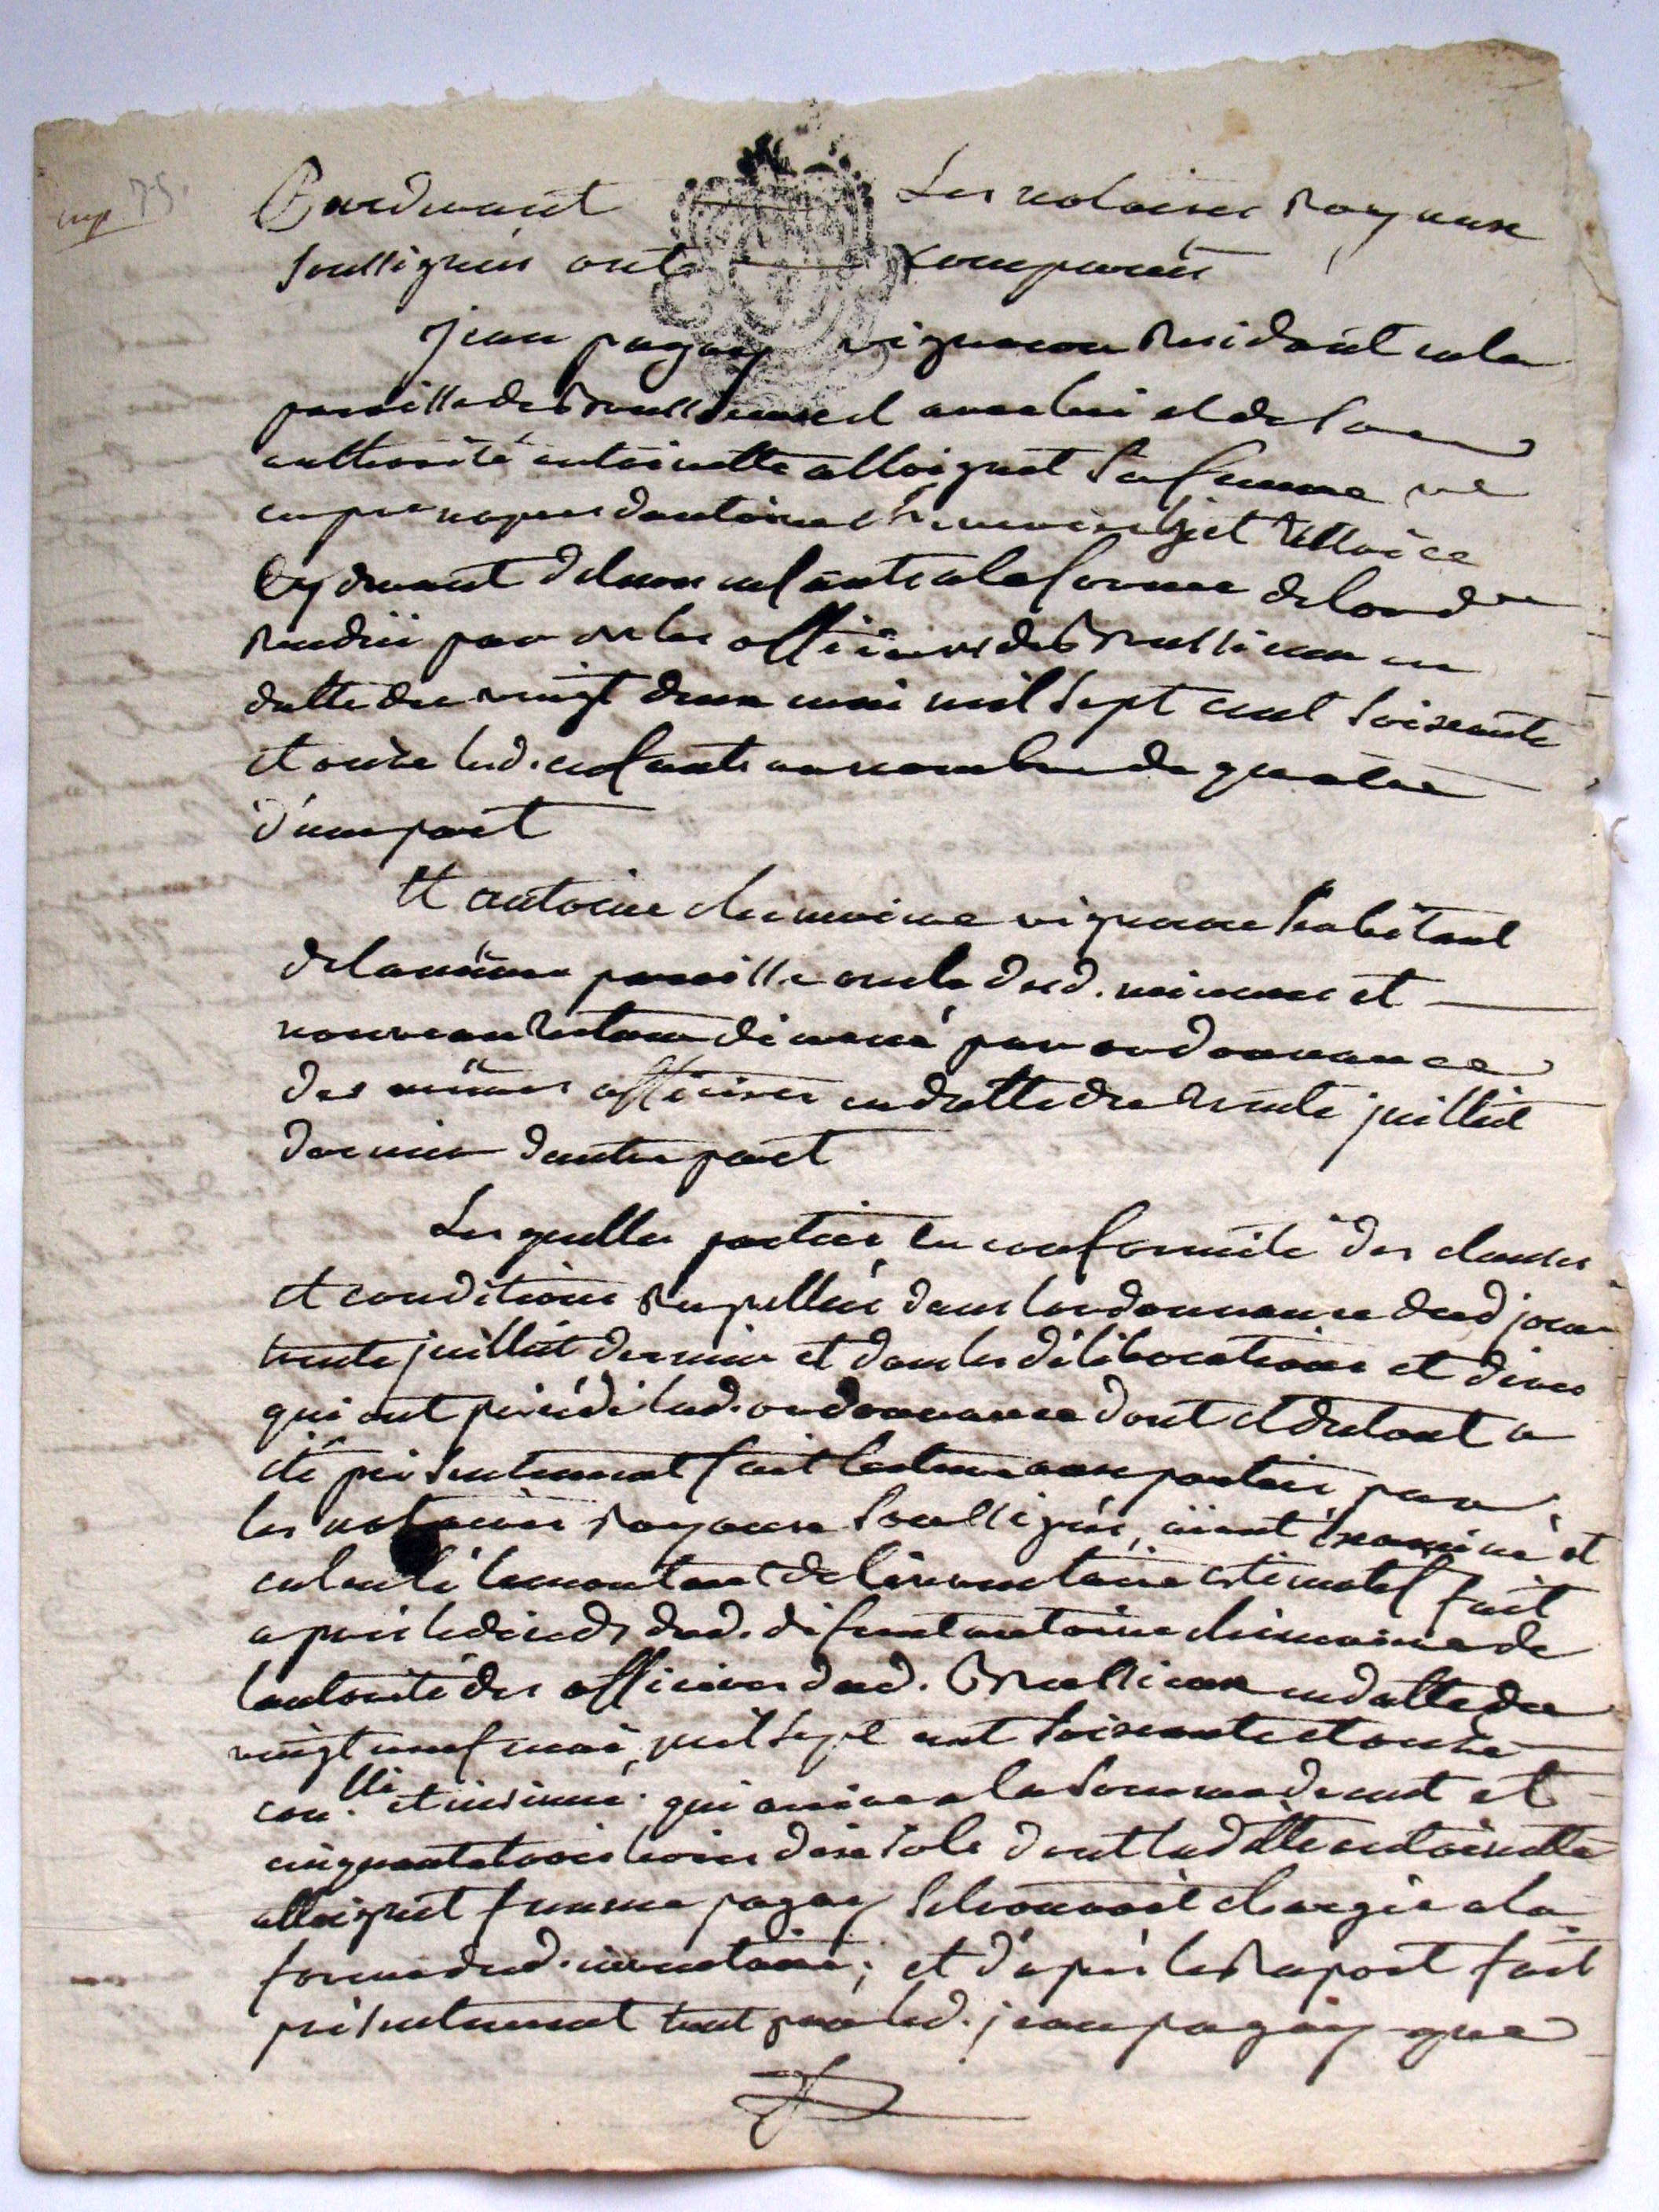 Pardevant Les notaires Royaux
soussignés ont comparus
jean pagay vigneron Residant en la
paroisse de Brussieux et avec lui et de son
authorité antoinette alloignet sa femme ve
en pre nopces d'antoine chemoine et tutrice
cy devant de leurs enfants a la forme de lord ce
Rendüe par de les officiers de Brussieux en
datte du vingt deux mai mil sept cent soixante
et onze lesd. enfants au nombre de quatre
d'une part
Et antoine chemoine vigneron habitant
de la même paroisse oncle desd. mineurs et
nouveau tuteur décerné par ordonnance
des mêmes officiers en datte du trente juillet
dernier d'autre part
Les quelles parties en conformité des clauses
et conditions Rapellées dans lordonnance dud jour
trente juillet dernier et dans les délibérations et dires
qui ont précédé lad. ordonnance dont et du tout a
été présentement fait lecture aux parties par
les notaires Royaux soussignés, aïant examiné et
calculé le montant de linventaire estimatif fait
apres le décès dud. défunt antoine chemoine de
lautorité des officiers dud. Brussieux en datte du
vingt neuf mai mil sept cent soixante et onze
con.llé et insinué. qui arrive a la somme de cent et
cinquante trois livres dix sols dont lad. antoinette
alloignet femme pagay se trouvoit chargée a la
forme dud. inventaire; et d'après le Raport fait
présentement tant par led. jean pagay que